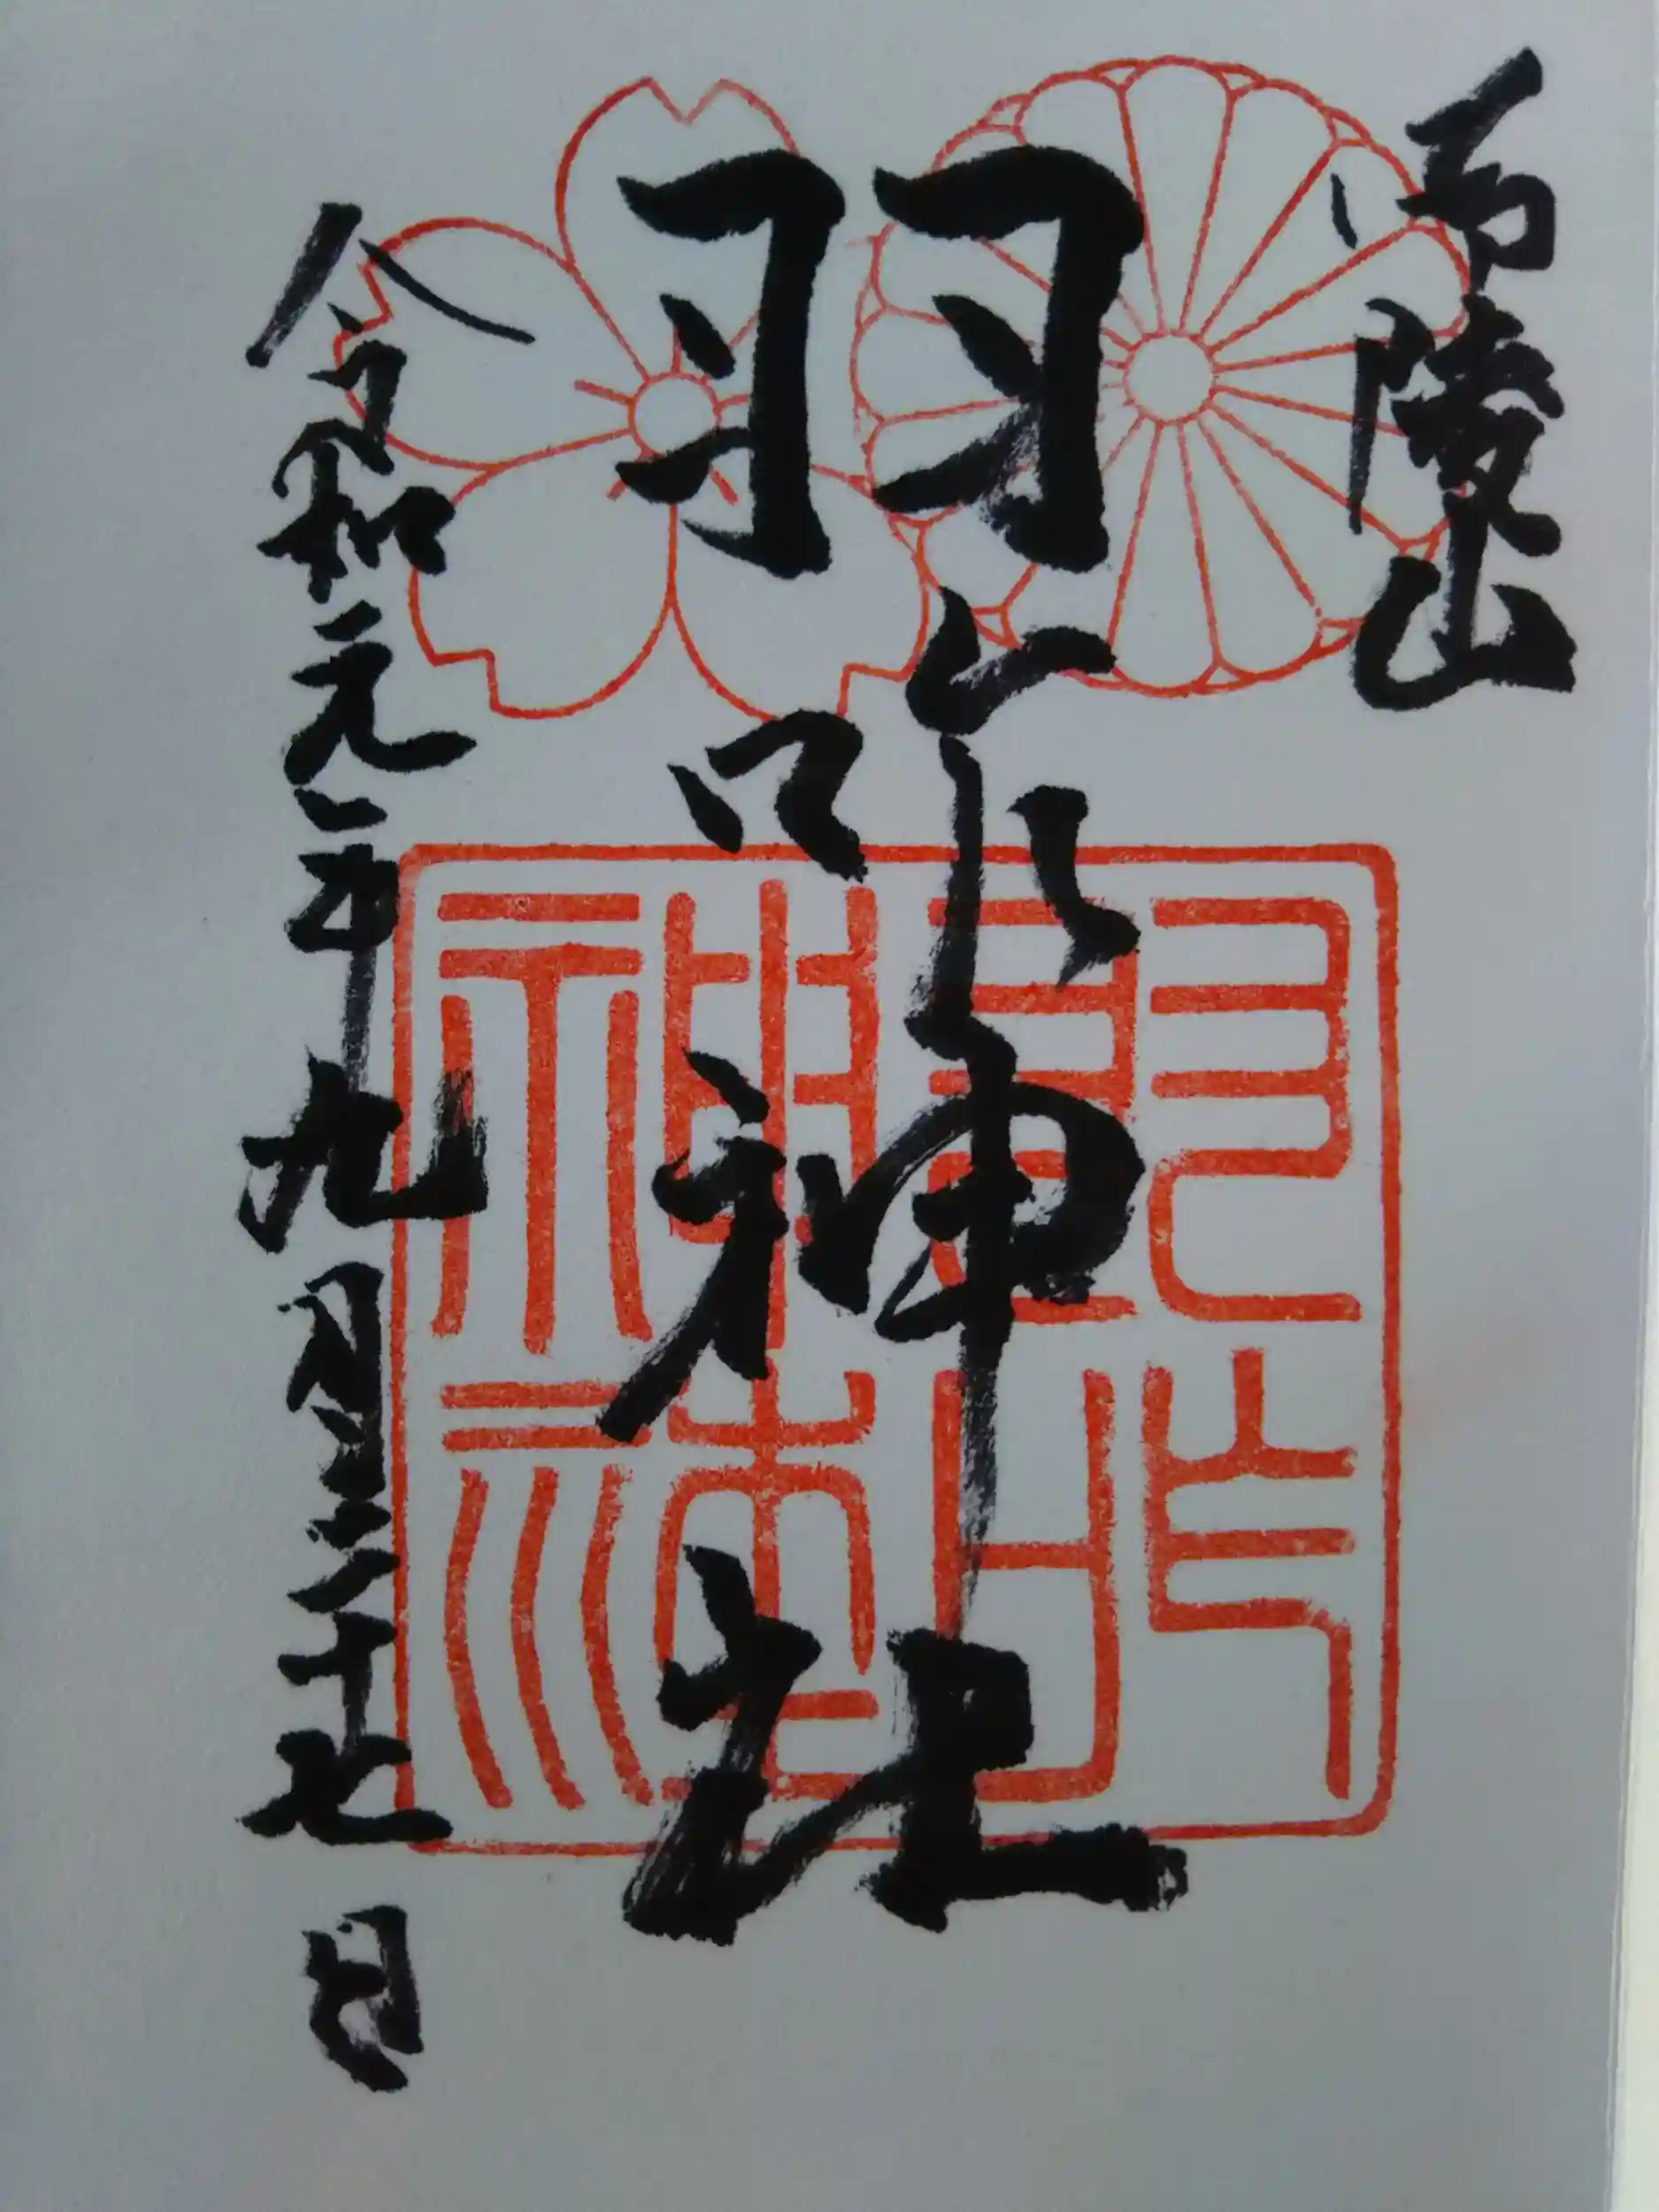 御陵山
羽咋神社
令和元年九月二十七日
羽咋
神社